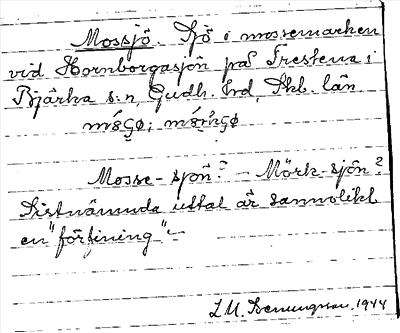 Mossjö. Sjö i mossemarken
vid Hornborgasjön på Frestena i
Bjärka s:n, Gudh. hd, Skb. län
Mosse-sjön? - Mörk-sjön?
Sistnämnda uttal är sannolikt
en "förfining"-
L. M. 1944